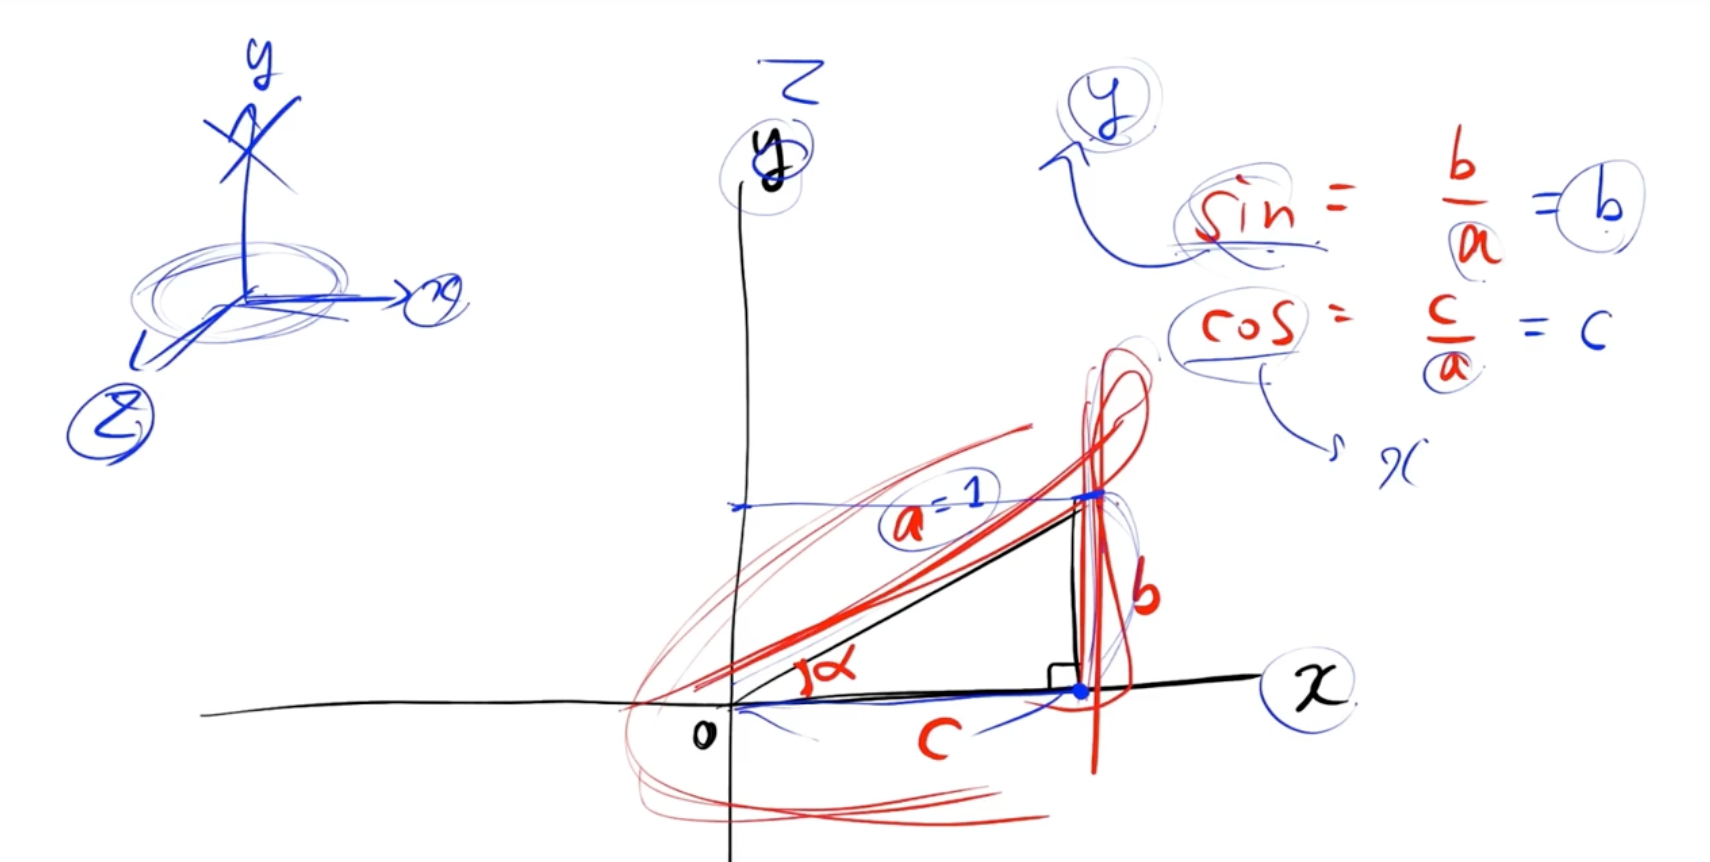 y
x
z
z
y
y
sin = b/a = b
cos = c/a = c
x
a = 1
b
α
c
o
x